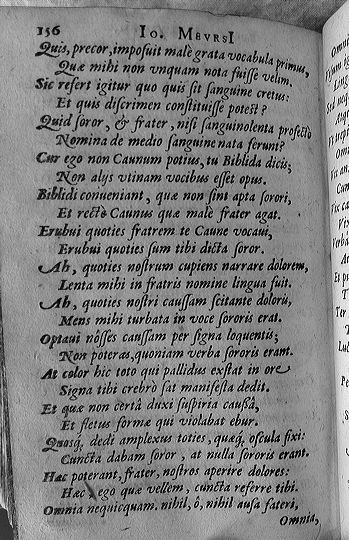 156 Io. MEVRSI
Quis, precor, imposuit malè grata vocabula primus,
Quæ mihi non vnquam nota fuisse velim.
Sic refert igitur quo quis sit sanguine cretus:
Et quis discrimen constituisse potest?
Quid soror, & frater, nisi sanguinolenta profectò
Nomina de medio sanguine nata ferunt?
Cur ego non Caunum potius, tu Biblida dicis;
Non alys vtinam vocibus esset opus.
Biblidi conueniant, quæ non sint apta sorori,
Et rectè Caunus quæ malè frater agat.
Erubui quoties fratrem te Caune vocaui,
Erubui quoties sum tibi dicta soror.
Ah, quoties nostrum cupiens narrare dolorem,
Lenta mihi in fratris nomine lingua fuit.
Ah, quoties nostri caussam scitante dolorû,
Mens mihi turbata in voce sororis erat.
Optaui nôsses caussam per signa loquentis;
Non poteras, quoniam verba sororis erant.
At color hic toto qui pallidus exstat in ore
Signa tibi crebrò sat manifesta dedit.
Et quæ non certâ duxi suspiria caussâ,
Et fletus formæ qui violabat ebur.
Quosq; dedi amplexus toties, quæq; oscula fixi:
Cuncta dabam soror, at nulla sororis erant.
Hæc poterant, frater, nostros aperire dolores:
Hæc, ego quæ vellem, cuncta referre tibi.
Omnia nequicquam. nihil, ô, nihil ausa fateri,
Omnia,